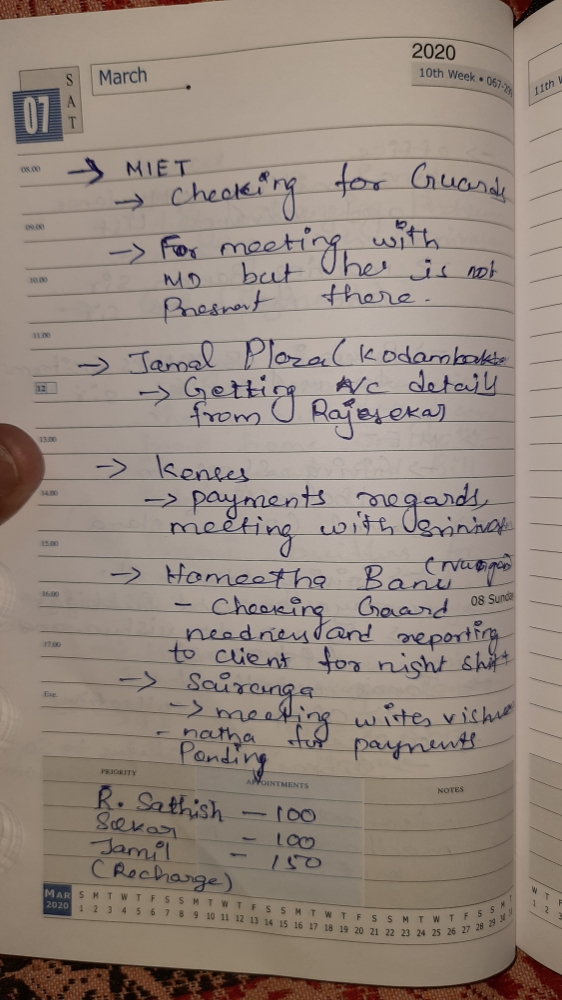 2020
10th Week • 067-
11th
March
07
SAT
08.00
→ MIET
→ Checking for Guards
09.00
→ For meeting with
10.00
MD but he is not
Presnent there.
11.00
→ Jamal Plaza (Kodambak
12
→ Getting A/c details
from Rajesekar
13.00
→ Kenses
14.00
→ Payments regards,
meeting with Srinivas
15.00
→ Hameetha Banu
16.00
- Checking Guard
08 Sunda
and reporting
17.00
to client for night shift
→ Sairanga
Eve.
→ meeting with vishwa
- natha for payments
Pending
PRIORITY
APPOINTMENTS
NOTES
R. Sathish - 100
Sekar - 100
Jamil - 150
(Recharge)
MAR 2020
S M T W T F S S M T W T F S S M T W T F S S M T W T F S S M T
1 2 3 4 5 6 7 8 9 10 11 12 13 14 15 16 17 18 19 20 21 22 23 24 25 26 27 28 29 30 31
W T F
1 2 3